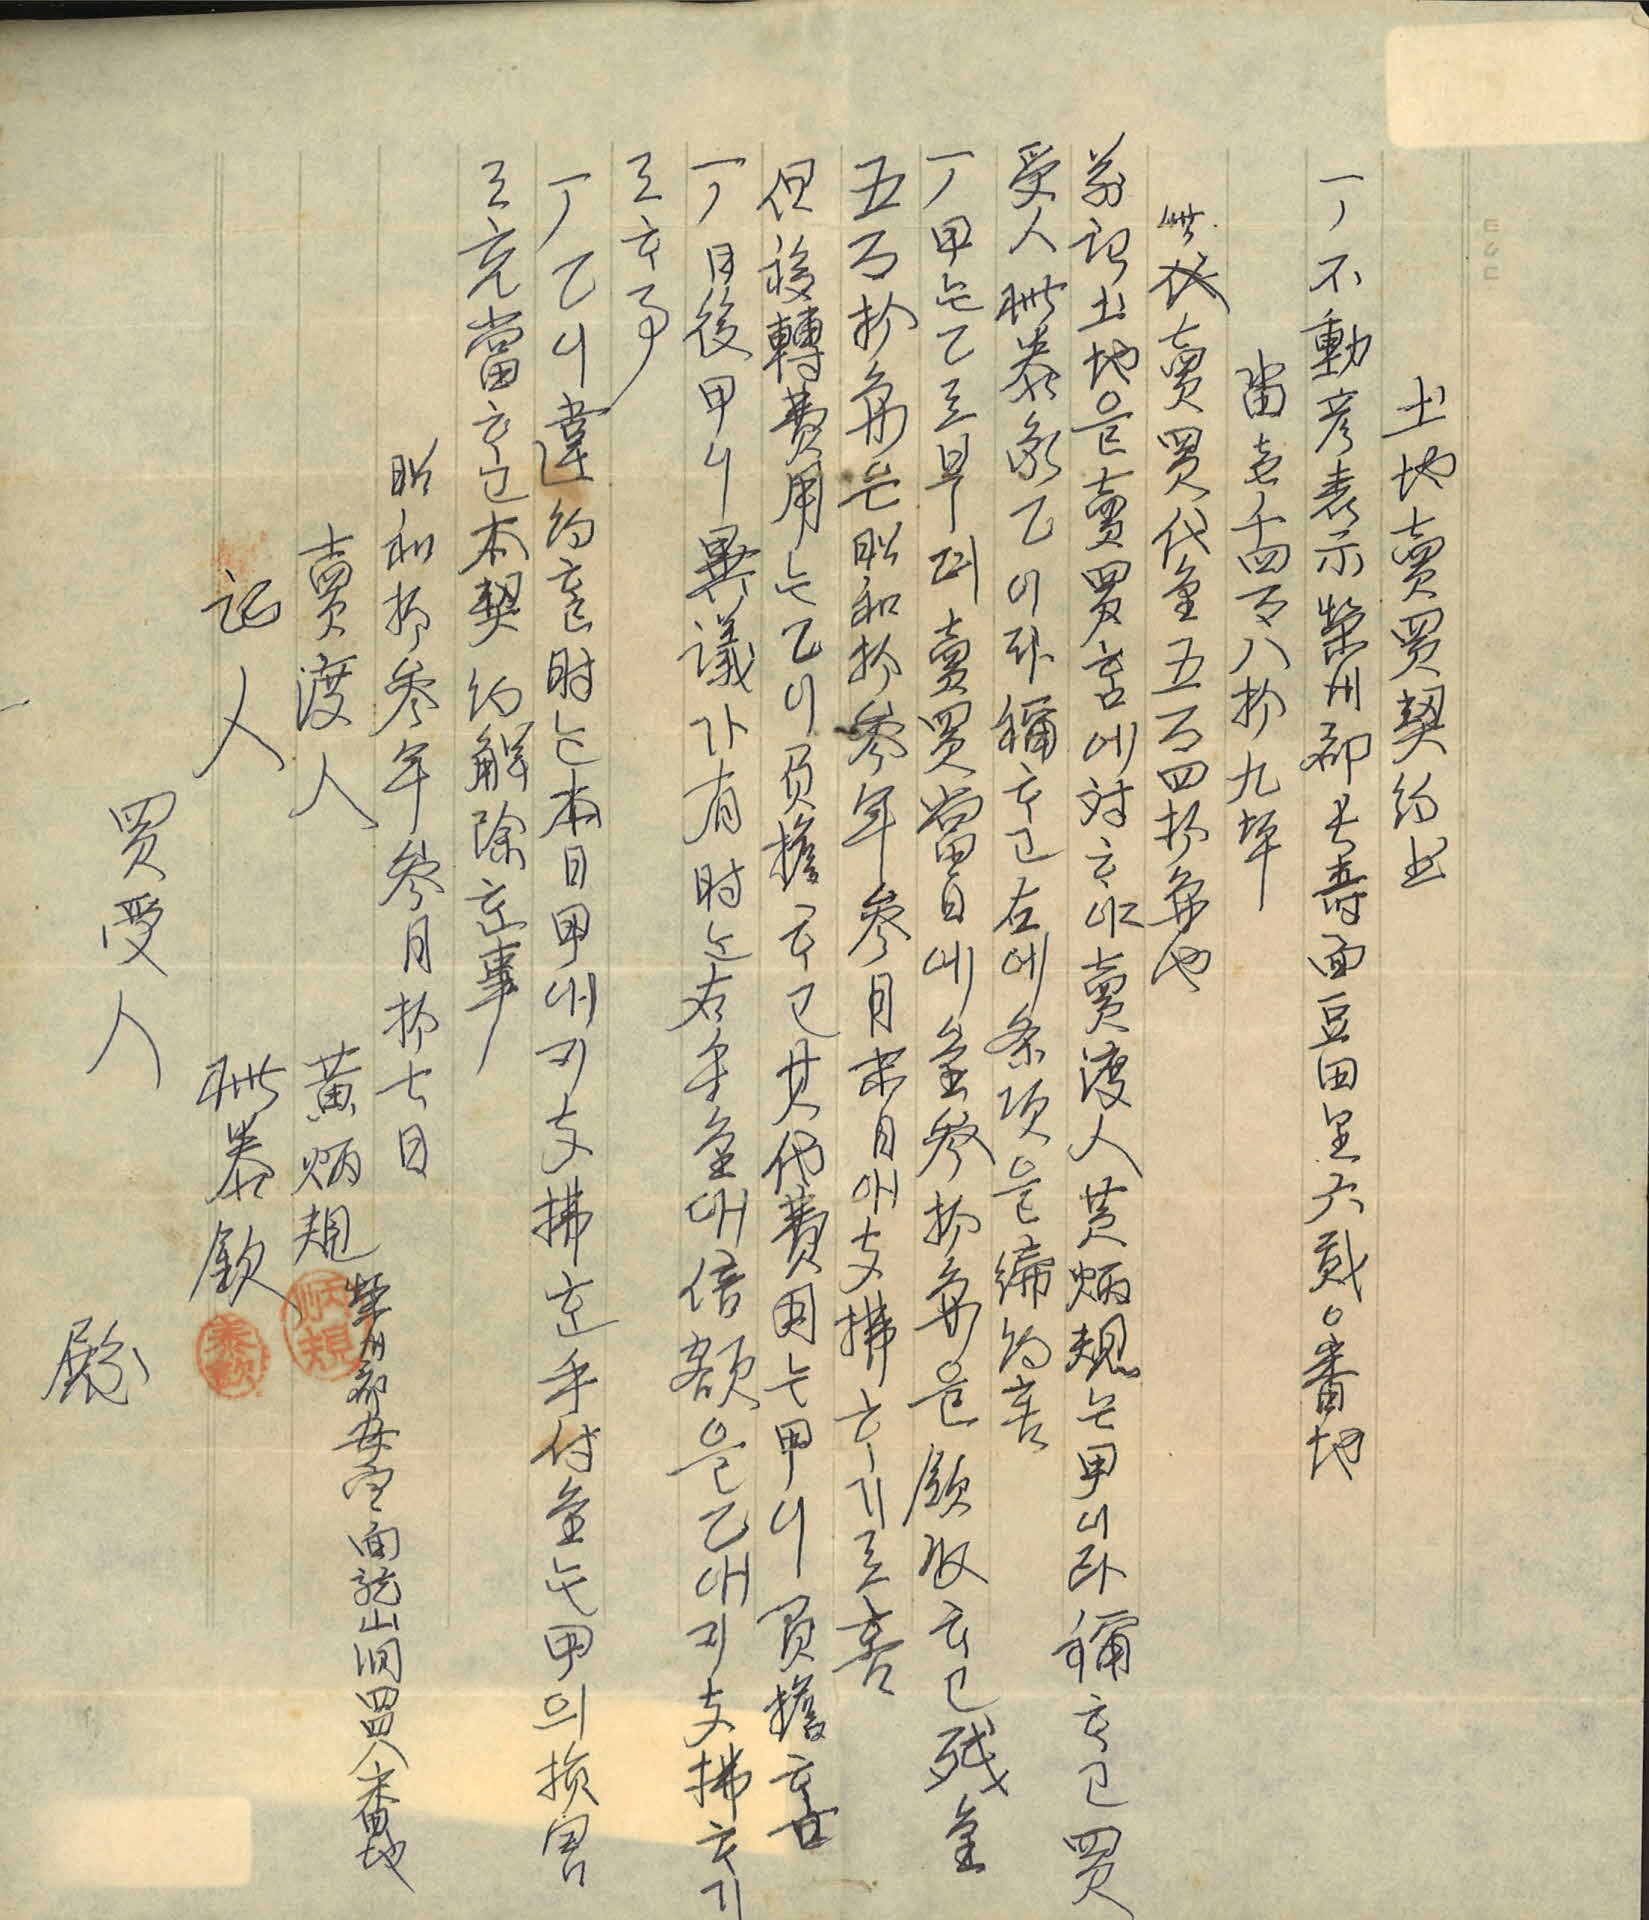 土地賣買契約書
一, 不動産表示 榮州郡長壽面豆田里六貳〇番地
畓壱千四百八拾九坪
此 賣買代金五百四拾円也
前記土地을賣買홈에対하야賣渡人黃炳規는甲이라稱하고買
受人 泰欽乙이라稱하고左에条項을締約홈
一, 甲는乙로부터賣買當日에金參拾円을領收하고残金
五百拾円은昭和拾參年參月末日에支拂하기로홈
但移轉費用는乙이負擔하고其他費用는甲이負擔홈
一, 日後甲이異議가有時는右手金에倍額을乙에지支拂하기
로하事
一, 乙이違約할時는本日甲에지支拂한手付金는甲의損害
로充當하고本契約解除한事
昭和拾參年參月拾七日
榮州郡安定面龍山洞四四八番地
賣渡人 黃炳規
炳規
証人 泰欽
泰欽
買受人 殿